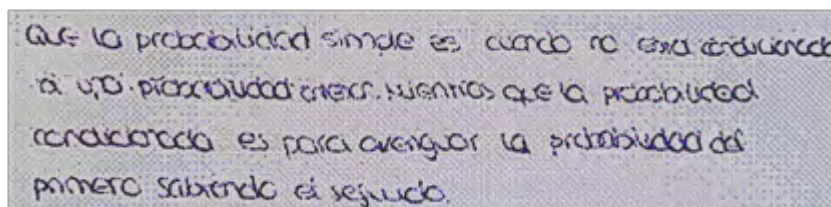 Que la probabilidad simple es cuando no está condicionada
a una probabilidad anterior. Mientras que la probabilidad
condicionada es para averiguar la probabilidad del
primero sabiendo el segundo.